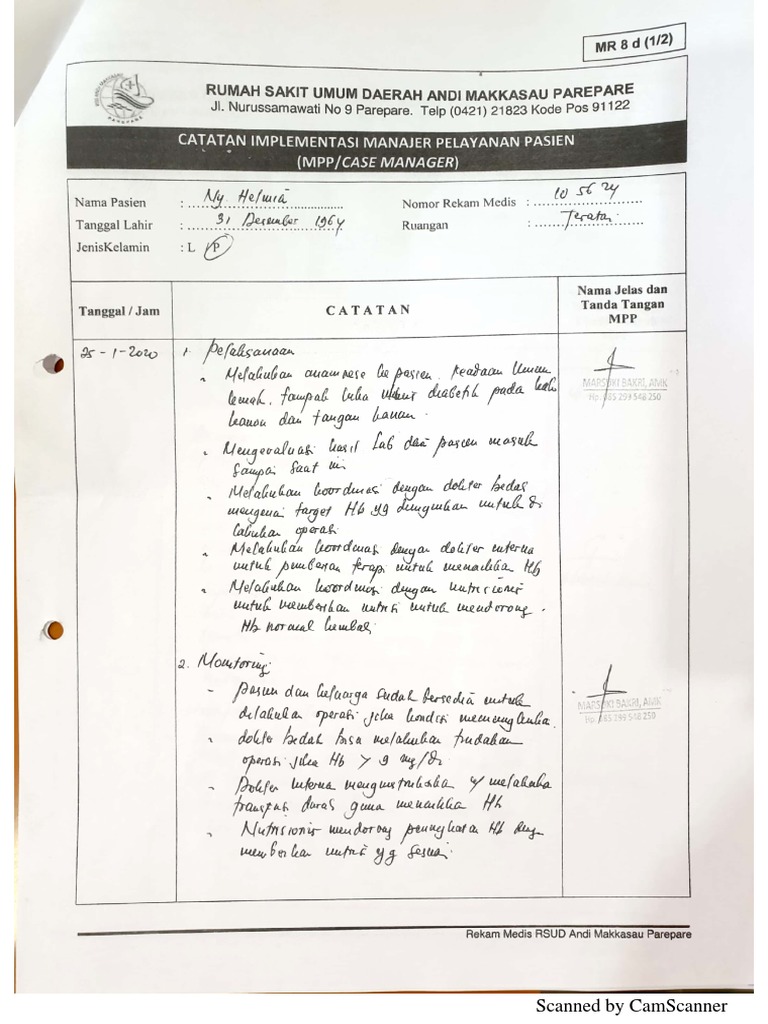 MR 8 d (1/2)
RUMAH SAKIT UMUM DAERAH ANDI MAKKASAU PAREPARE
Jl. Nurussamawati No 9 Parepare. Telp (0421) 21823 Kode Pos 91122
PAREPARE
CATATAN IMPLEMENTASI MANAJER PELAYANAN PASIEN
(MPP/CASE MANAGER)
Nama Pasien : Ny. Helmia
Nomor Rekam Medis : 10 56 24
Tanggal Lahir : 31 Desember 1964
Ruangan : Teratai
JenisKelamin : L / P
Tanggal / Jam
CATATAN
Nama Jelas dan
Tanda Tangan
MPP
25-1-2020
1. Pelaksanaan
Melakukan anamnese ke pasien, keadaan umum
lemah, tampak luka diabetik pada kaki
kanan dan tangan kanan.
MARSUKI BAKRI, AMK
Hp. 085 299 548 250
Mengevaluasi hasil Lab dari pasien masuk
sampai saat ini
Melakukan koordinasi dengan dokter bedah
mengenai target Hb yg diinginkan untuk di
lakukan operasi
Melakukan koordinasi dengan dokter interna
untuk pemberian terapi untuk menaikkan Hb
Melakukan koordinasi dengan nutrisionis
untuk memberikan nutrisi untuk mendorong
Hb normal kembali
2. Monitoring
- pasien dan keluarga sudah bersedia untuk
dilakukan operasi jika kondisi memungkinkan.
- dokter bedah bisa melakukan tindakan
operasi jika Hb > 9 mg/dl
- Dokter interna menginstruksikan u/ melakukan
transfusi darah guna menaikkan Hb
- Nutrisionis mendorong peningkatan Hb dengan
memberikan nutrisi yg sesuai.
MARSUKI BAKRI, AMK
Hp. 085 299 548 250
Rekam Medis RSUD Andi Makkasau Parepare
Scanned by CamScanner